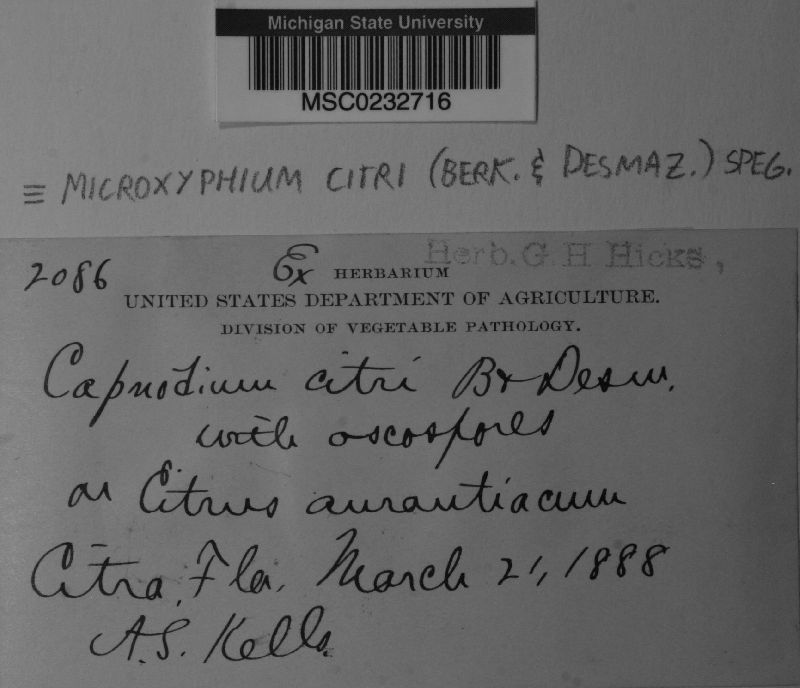 Michigan State University
MSC0232716
≡ MICROXYPHIUM CITRI (BERK. & DESMAZ.) SPEG.
2086 Ex HERBARIUM Herb. G. H Hicks,
UNITED STATES DEPARTMENT OF AGRICULTURE.
DIVISION OF VEGETABLE PATHOLOGY.
Capnodium citri B & Desm.
with ascospores
on Citrus aurantiacum
Citra, Fla. March 21, 1888
A.S. Kells.